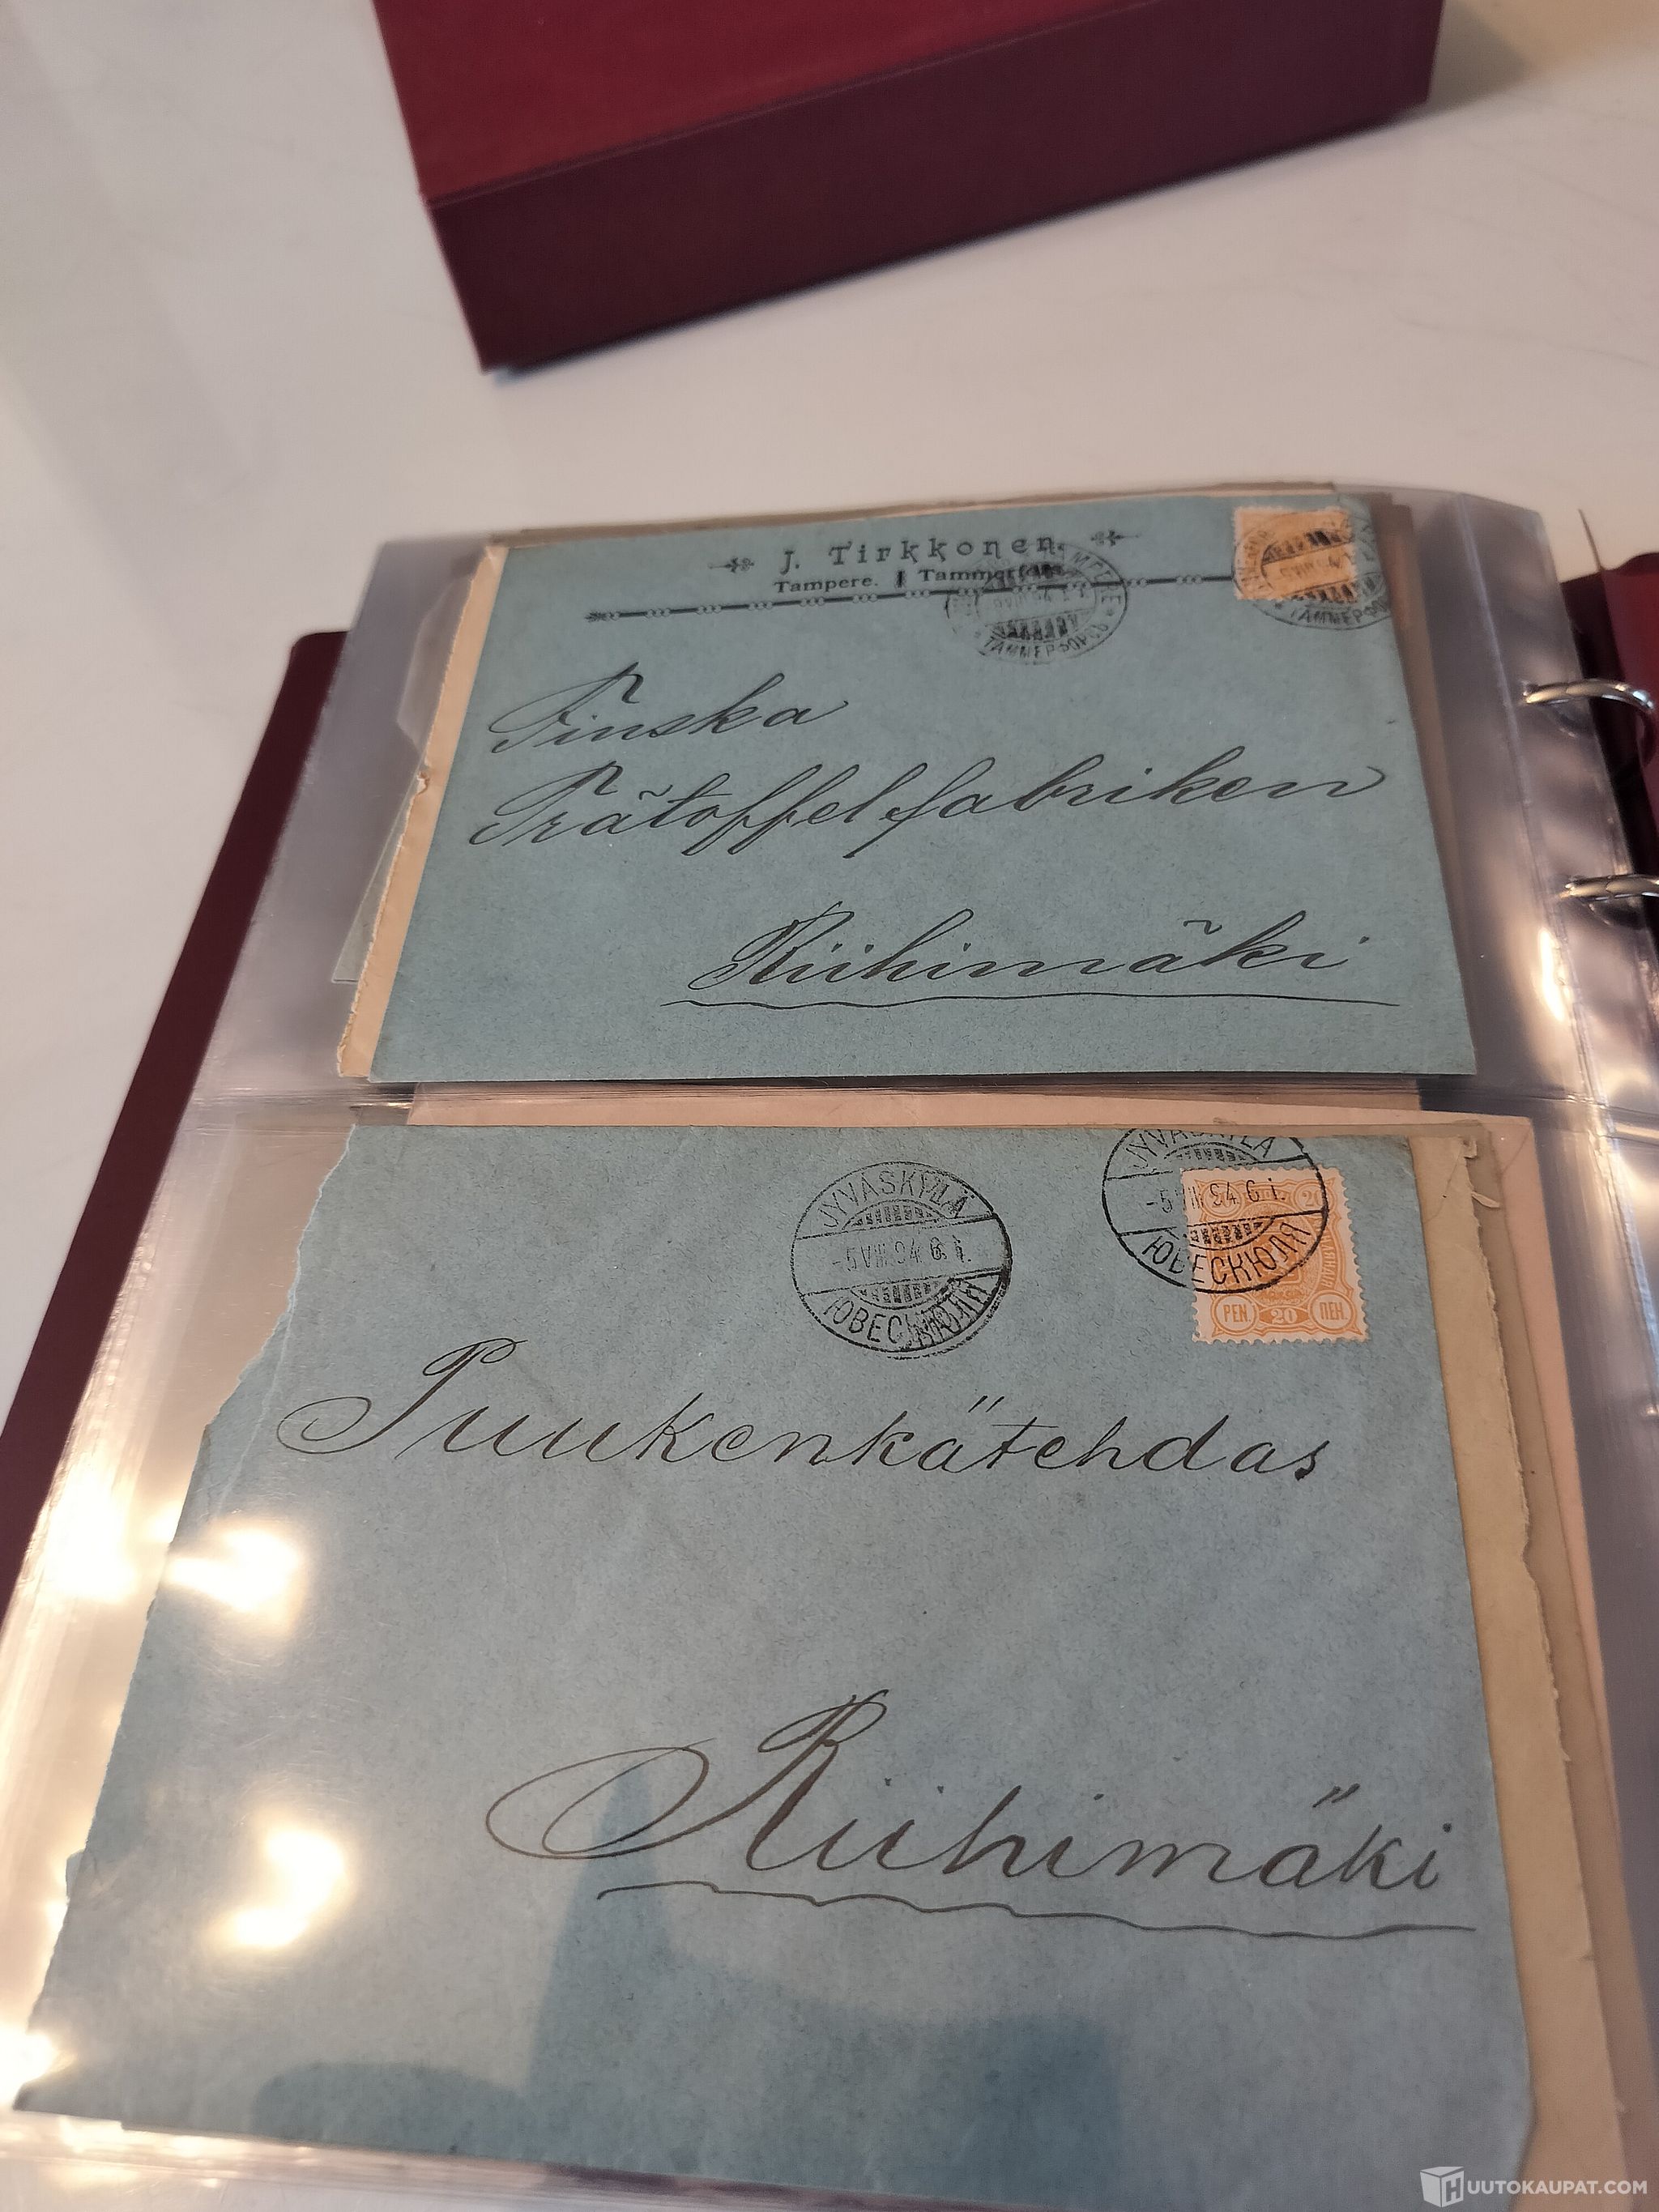 J. Tirkkonen.
Tampere. Tammerfors.
ТАММЕРФОРСЪ
ТАММЕРФО
Finska
Trätoffelfabriken
Riihimäki
JYVÄSKYLÄ
-5 VIII 94 6 i.
ЮВЕСКЮЛЯ
JYVÄSKYLÄ
-5 VIII 94 6 i.
ЮВЕСКЮЛЯ
20
PEN 20 ПЕН
Puukenkätehdas
Riihimäki
HUUTOKAUPAT.COM